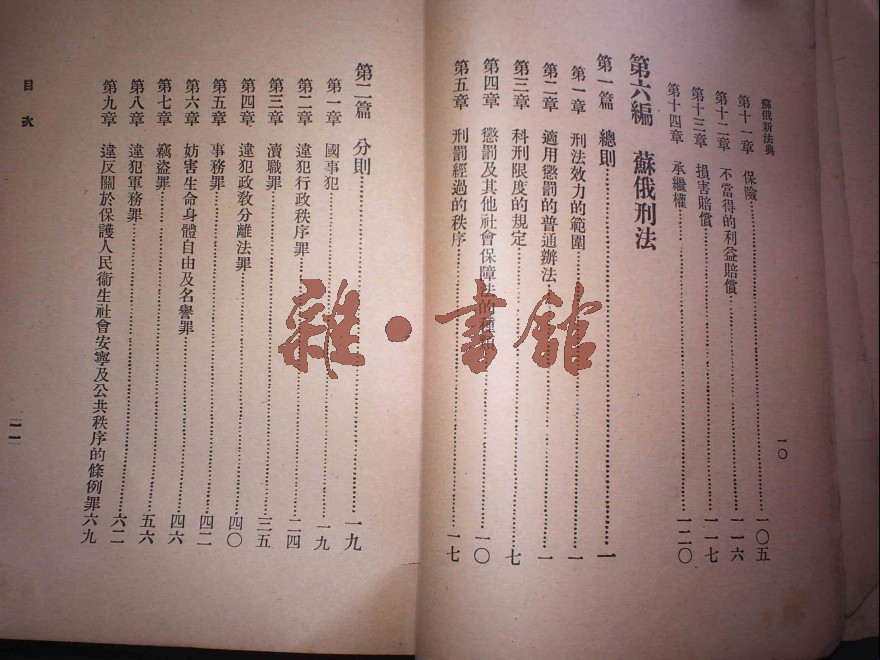 蘇俄新法典
第十一章 保險……一〇五
第十二章 不當得的利益賠償……一一六
第十三章 損害賠償……一一七
第十四章 承繼權……一二〇
第六編 蘇俄刑法
第一篇 總則……一
第一章 刑法效力的範圍……一
第二章 適用懲罰的普通辦法……一
第三章 科刑限度的規定……七
第四章 懲罰及其他社會保障法的種……一〇
第五章 刑罰經過的秩序……一七
一〇
第二篇 分則……一九
第一章 國事犯……一九
第二章 違犯行政秩序罪……二四
第三章 瀆職罪……三五
第四章 違犯政敎分離法罪……四〇
第五章 事務罪……四二
第六章 妨害生命身體自由及名譽罪……四六
第七章 竊盜罪……五六
第八章 違犯軍務罪……六二
第九章 違反關於保護人民衞生社會安寧及公共秩序的條例罪六九
目次
一一
雜·書館